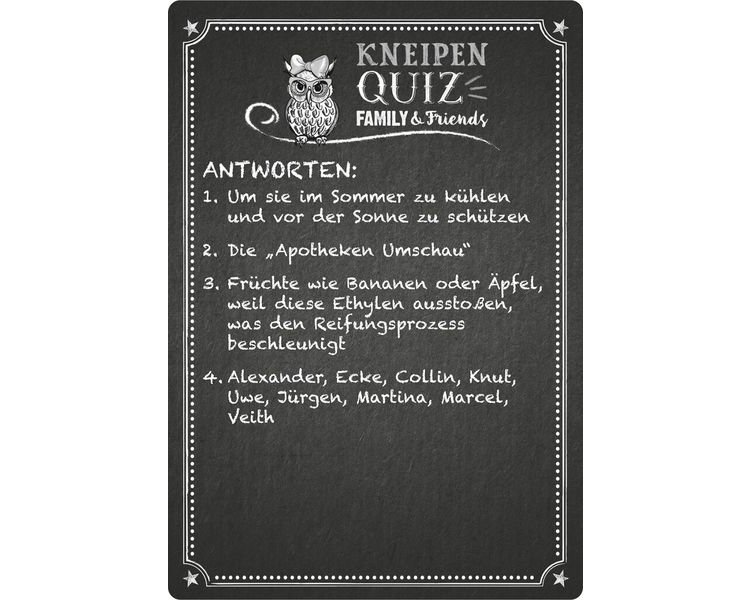 KNEIPEN
QUIZ
FAMILY & Friends
ANTWORTEN:
1. Um sie im Sommer zu kühlen
und vor der Sonne zu schützen
2. Die „Apotheken Umschau“
3. Früchte wie Bananen oder Äpfel,
weil diese Ethylen ausstoßen,
was den Reifungsprozess
beschleunigt
4. Alexander, Ecke, Collin, Knut,
Uwe, Jürgen, Martina, Marcel,
Veith